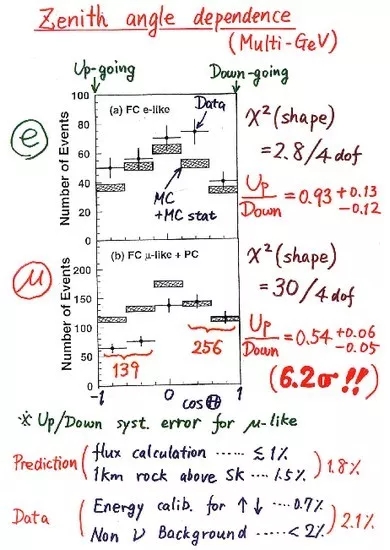 Zenith angle dependence
(Multi-GeV)
Up-going
Down-going
e
Number of Events
100
80
60
40
20
0
(a) FC e-like
Data
MC
+MC stat
χ²(shape)
= 2.8/4 dof
Up/Down = 0.93 +0.13 -0.12
μ
Number of Events
200
150
100
50
0
(b) FC μ-like + PC
139
256
-1 0 1
cosΘ
χ²(shape)
= 30/4 dof
Up/Down = 0.54 +0.06 -0.05
(6.2σ!!)
※ Up/Down syst. error for μ-like
Prediction ( flux calculation ...... ≲ 1%
1km rock above SK .... 1.5% ) 1.8%
Data ( Energy calib. for ↑ ↓ .... 0.7%
Non ν Background ...... < 2% ) 2.1%